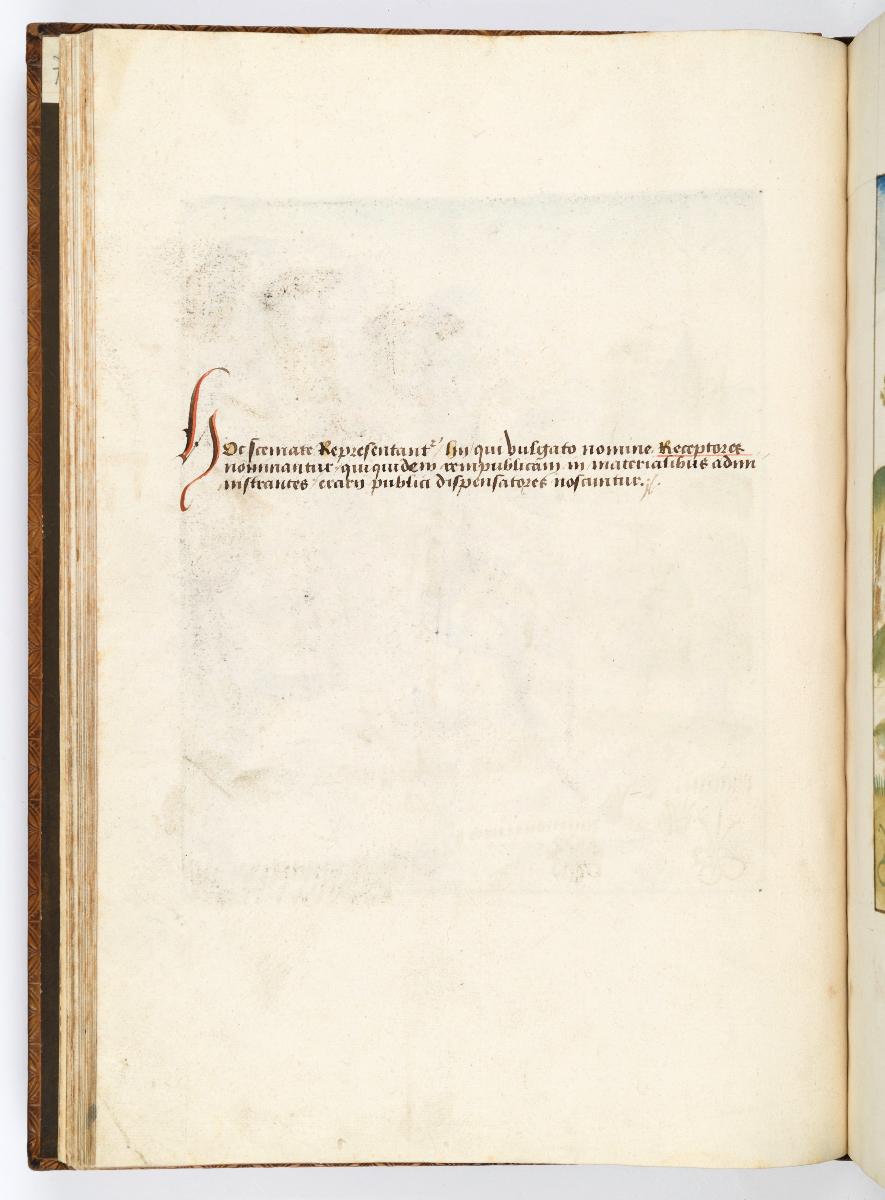 HOc scemate Representant^r hii qui vulgato nomine Receptores
nominantur qui quidem rempublicam in materialibus admi
nistrantes erarii publici dispensatores noscuntur.